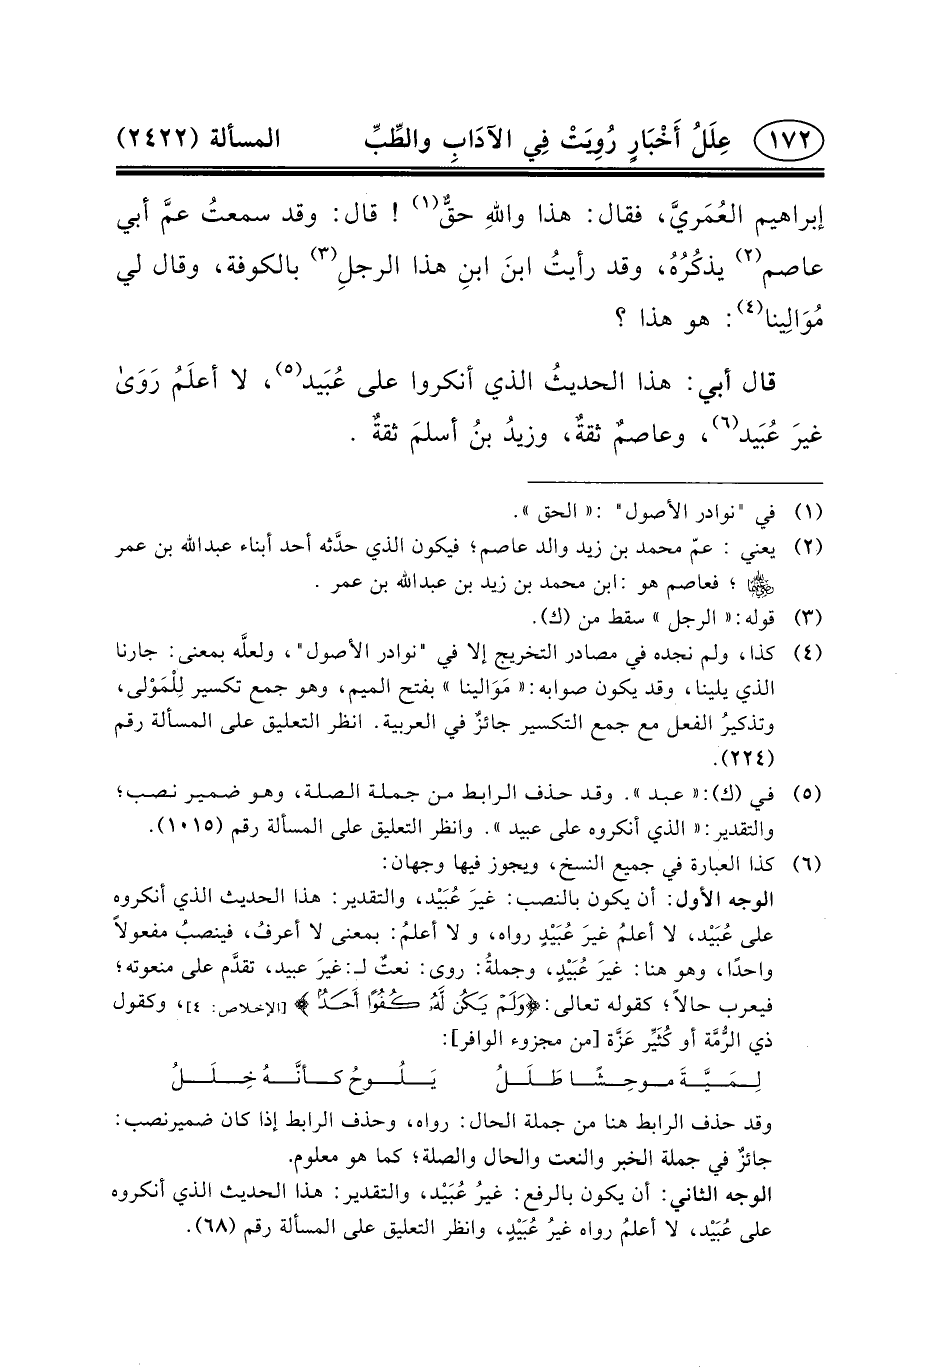 ١٧٢ عِلَلُ أَخْبَارٍ رُوِيَتْ فِي الآدَابِ والطِّبِّ المسألة (٢٤٢٢)
إبراهيم العُمَريَّ، فقال: هذا واللهِ حقٌّ(١) ! قال: وقد سمعتُ عمَّ أبي
عاصم(٢) يذكُرُهُ، وقد رأيتُ ابنَ ابنِ هذا الرجلِ(٣) بالكوفة، وقال لي
مُوَالِينا(٤): هو هذا ؟
قال أبي: هذا الحديثُ الذي أنكروا على عُبَيد(٥)، لا أعلَمُ رَوَىٰ
غيرَ عُبَيد(٦)، وعاصمٌ ثقةٌ، وزيدُ بنُ أسلمَ ثقةٌ .
(١) في "نوادر الأصول" :« الحق ».
(٢) يعني : عمّ محمد بن زيد والد عاصم؛ فيكون الذي حدَّثه أحد أبناء عبدالله بن عمر
رضي الله عنهما ؛ فعاصم هو :ابن محمد بن زيد بن عبدالله بن عمر .
(٣) قوله:« الرجل » سقط من (ك).
(٤) كذا، ولم نجده في مصادر التخريج إلا في "نوادر الأصول"، ولعلَّه بمعنى: جارنا
الذي يلينا، وقد يكون صوابه:« مَوَالينا » بفتح الميم، وهو جمع تكسير لِلْمَوْلى،
وتذكيرُ الفعل مع جمع التكسير جائزٌ في العربية. انظر التعليق على المسألة رقم
(٢٢٤).
(٥) في (ك):« عبد ». وقد حذف الرابط من جملة الصلة، وهو ضمير نصب؛
والتقدير:« الذي أنكروه على عبيد ». وانظر التعليق على المسألة رقم (١٠١٥).
(٦) كذا العبارة في جميع النسخ، ويجوز فيها وجهان:
الوجه الأول: أن يكون بالنصب: غيرَ عُبَيْد، والتقدير: هذا الحديث الذي أنكروه
على عُبَيْد، لا أعلمُ غيرَ عُبَيْدٍ رواه، و لا أعلمُ: بمعنى لا أعرفُ، فينصبُ مفعولاً
واحدًا، وهو هنا: غيرَ عُبَيْدٍ، وجملةُ: روى: نعتٌ لـ:غيرَ عبيد، تقدَّم على منعوته؛
فيعرب حالاً؛ كقوله تعالى:﴿وَلَمْ يَكُن لَّهُۥ كُفُوًا أَحَدٌۢ ﴾ [الإخلاص: ٤]، وكقول
ذي الرُّمَّة أو كُثَيِّر عَزَّة [من مجزوء الوافر]:
لِـمَـيَّـةَ مـوحِـشًـا طَـلَـلُ يَـلُـوحُ كـأنَّـهُ خِـلَـلُ
وقد حذف الرابط هنا من جملة الحال: رواه، وحذف الرابط إذا كان ضميرنصب:
جائزٌ في جملة الخبر والنعت والحال والصلة؛ كما هو معلوم.
الوجه الثاني: أن يكون بالرفع: غيرُ عُبَيْد، والتقدير: هذا الحديث الذي أنكروه
على عُبَيْد، لا أعلمُ رواه غيرُ عُبَيْدٍ، وانظر التعليق على المسألة رقم (٦٨).